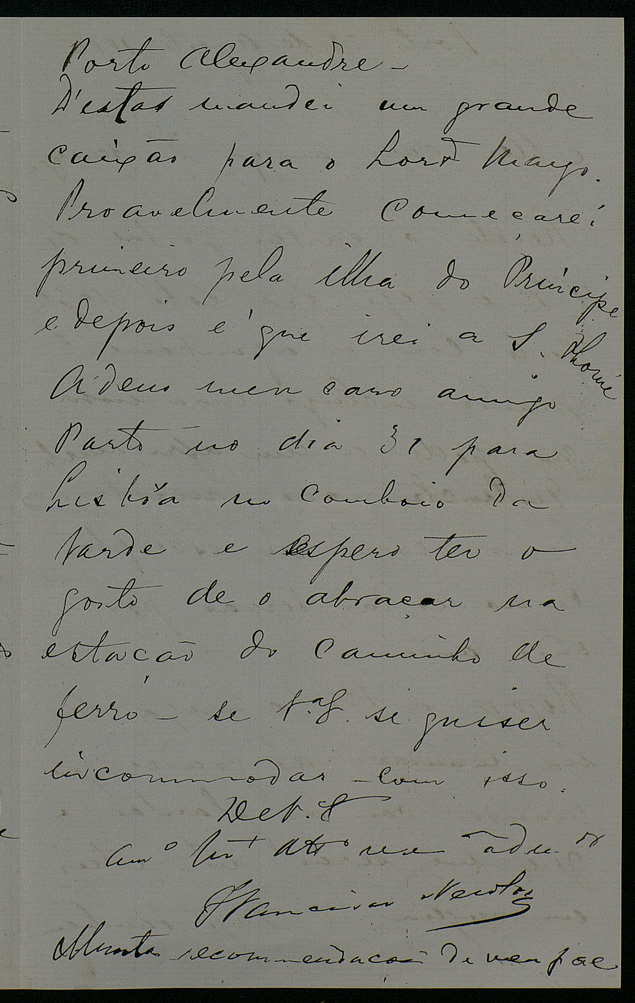 Porto Alexandre –
D'estas mandei um grande
caixão para o Lord Mayo.
Proavelmente começarei
primeiro pela ilha do Principe
e depois é que irei a S. Thomé
Adeus meu caro amigo
Parto no dia 31 para
Lisbôa no comboio da
tarde e espero ter o
gosto de o abraçar na
estação do caminho de
ferro – se V.ª S. se quiser
incommodar – com isso.
De V. S
Am.º
Francisco Newton
Muita recommendação de meu pae